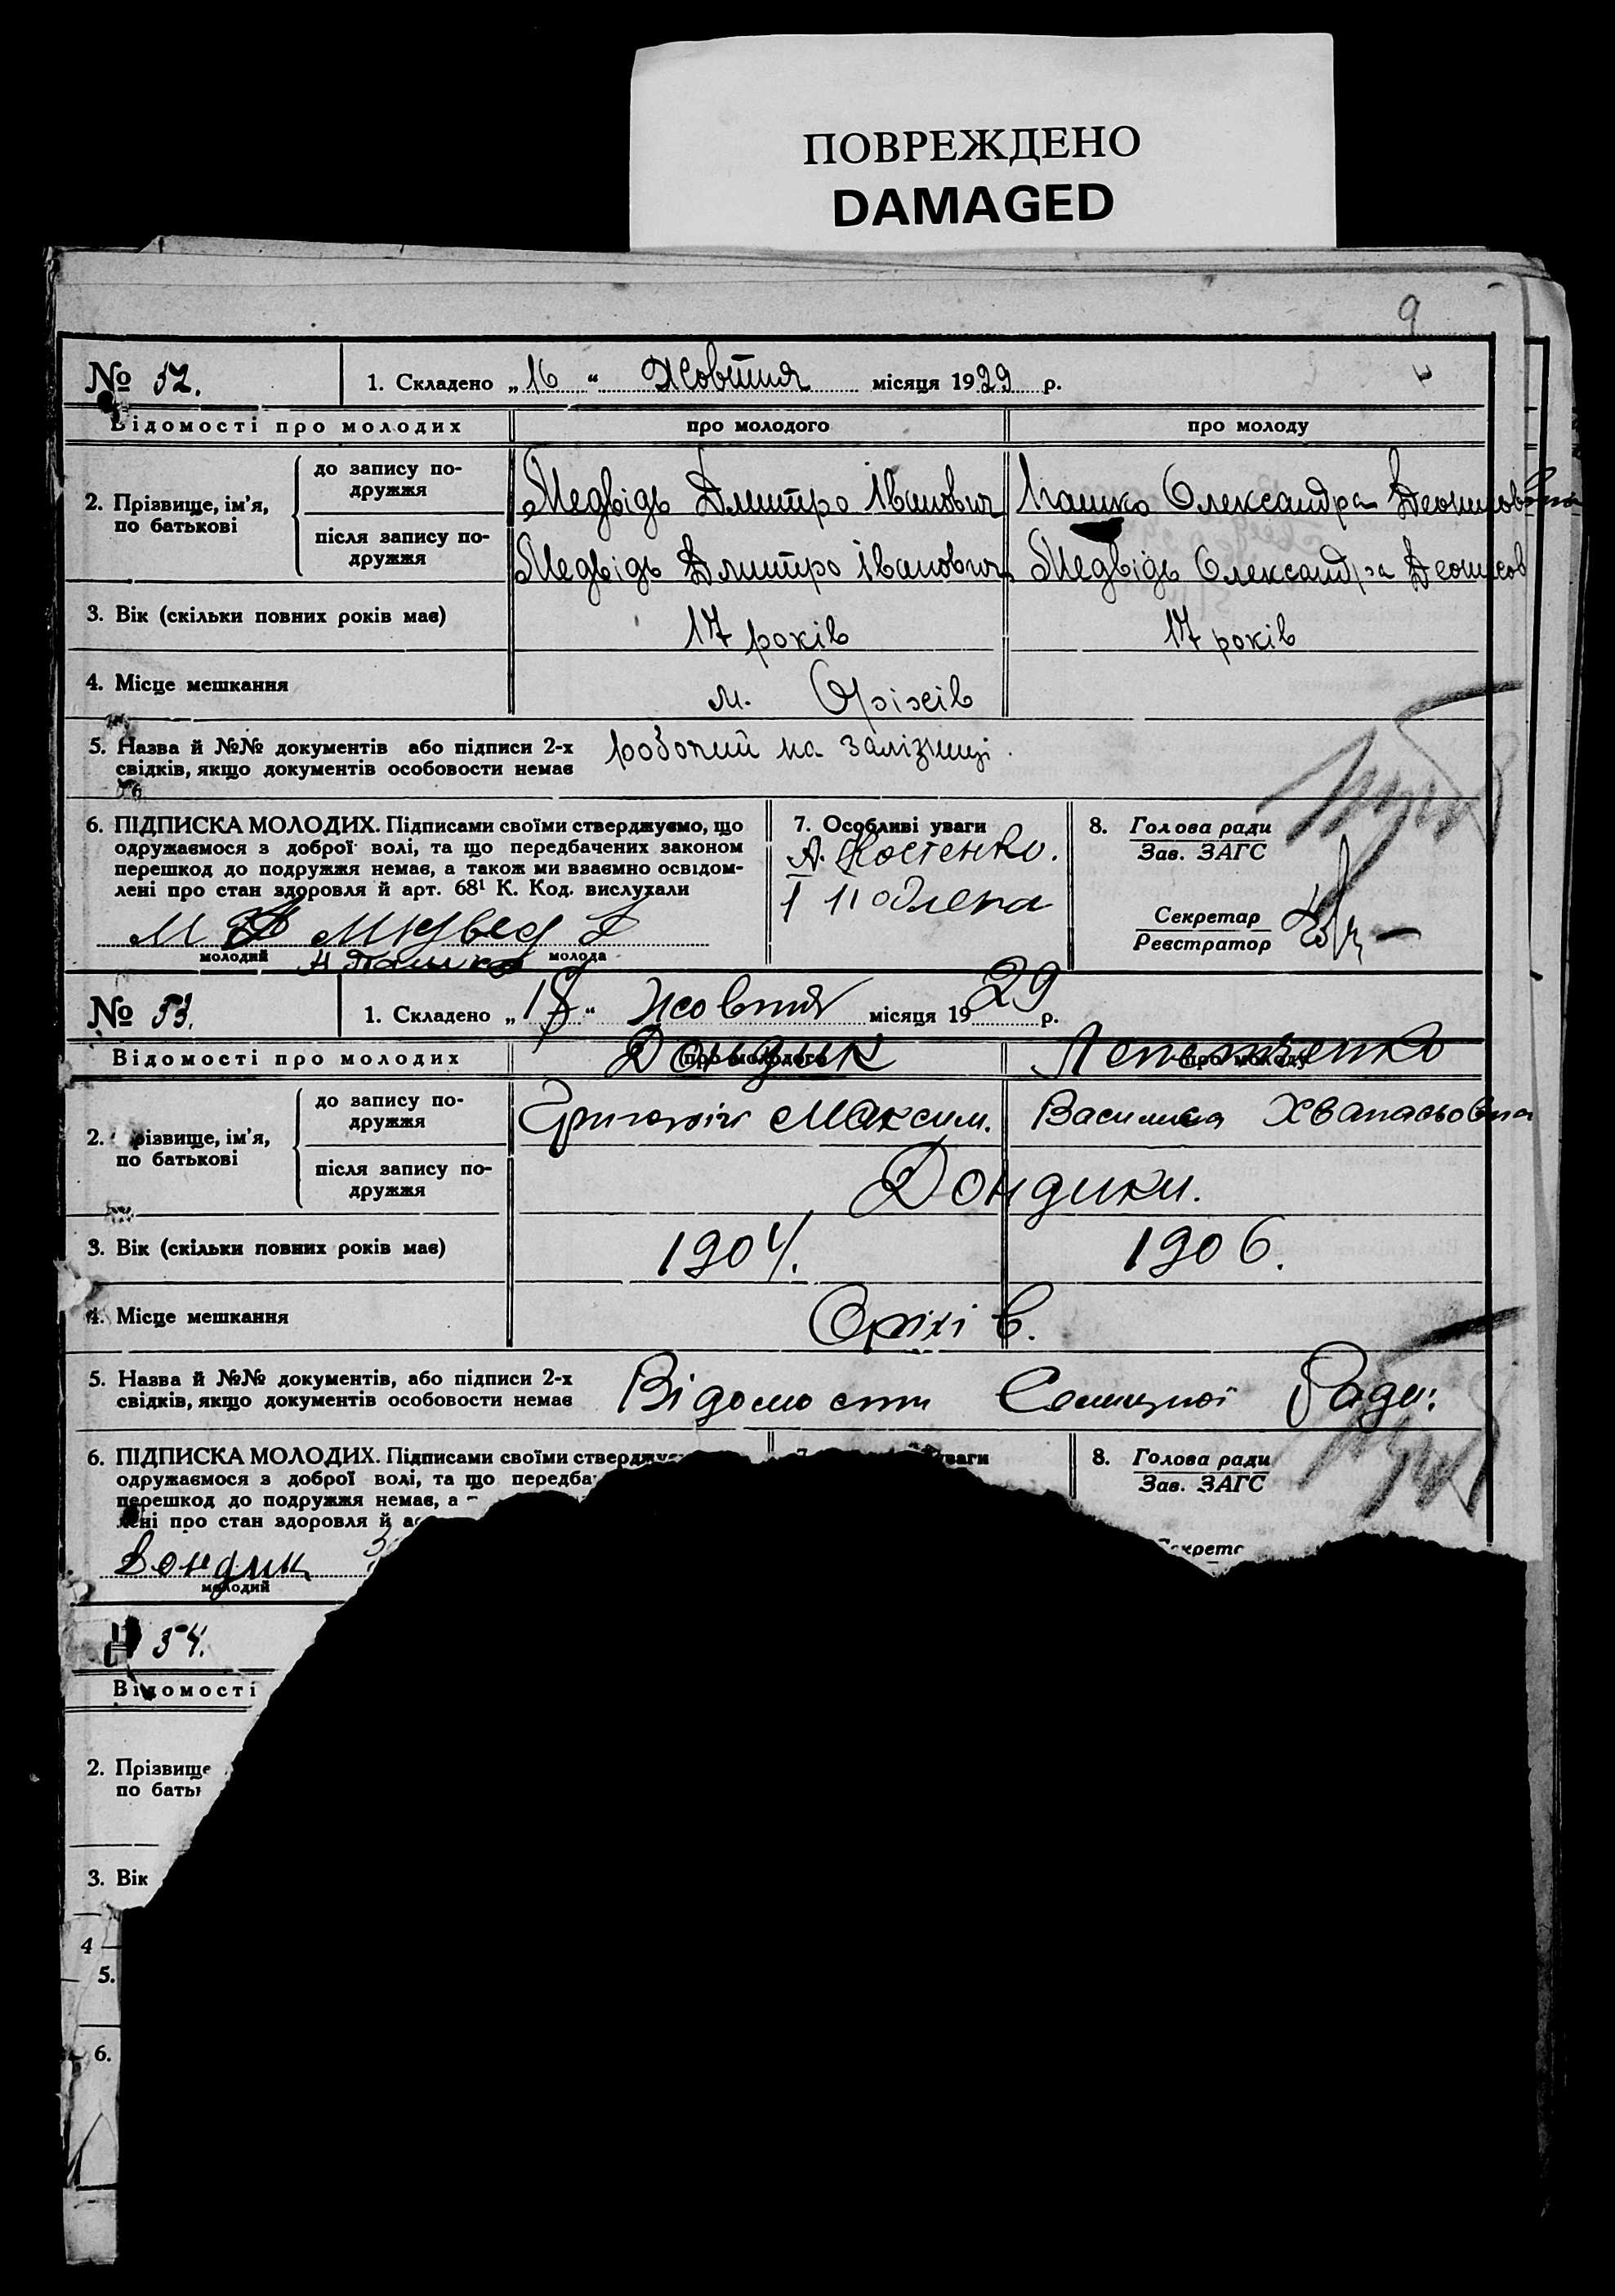 ПОВРЕЖДЕНО
DAMAGED
9
№ 52. 1. Складено „16“ Жовтня місяця 1929 р.
Відомості про молодих про молодого про молоду
2. Прізвище, ім'я, по батькові
до запису подружжя Медвідь Дмитро Іванович Пашко Олександра Деонисовна
після запису подружжя Медвідь Дмитро Іванович Медвідь Олександра Деонисов
3. Вік (скільки повних років має) 17 років 17 років
4. Місце мешкання м. Оріхів
5. Назва й №№ документів або підписи 2-х робочий на залізниці.
свідків, якщо документів особовости немає
6. ПІДПИСКА МОЛОДИХ. Підписами своїми стверджуємо, що
одружаємося з доброї волі, та що передбачених законом
перешкод до подружжя немає, а також ми взаємно освідом-
лені про стан здоровля й арт. 68¹ К. Код. вислухали
молодий молода
7. Особливі уваги
А. Костенко.
8. Голова ради
Зав. ЗАГС
Секретар
Реєстратор
№ 53. 1. Складено „18“ Жовтня місяця 1929 р.
Відомості про молодих про молодого про молоду
Дондик
2. Прізвище, ім'я, по батькові
до запису подружжя Григорій Максим. Василиса Хванасьовна
після запису подружжя Дондики.
3. Вік (скільки повних років має) 1904. 1906.
4. Місце мешкання Оріхів.
5. Назва й №№ документів, або підписи 2-х Відомости Селищної Ради:
свідків, якщо документів особовости немає
6. ПІДПИСКА МОЛОДИХ. Підписами своїми стверджує
одружаємося з доброї волі, та що передба
перешкод до подружжя немає, а
лені про стан здоровля й
Дондик
молодий
7. уваги
8. Голова ради
Зав. ЗАГС
Секрета
54.
Відомості
2. Прізвище
по батьк
3. Вік
4
5.
6.